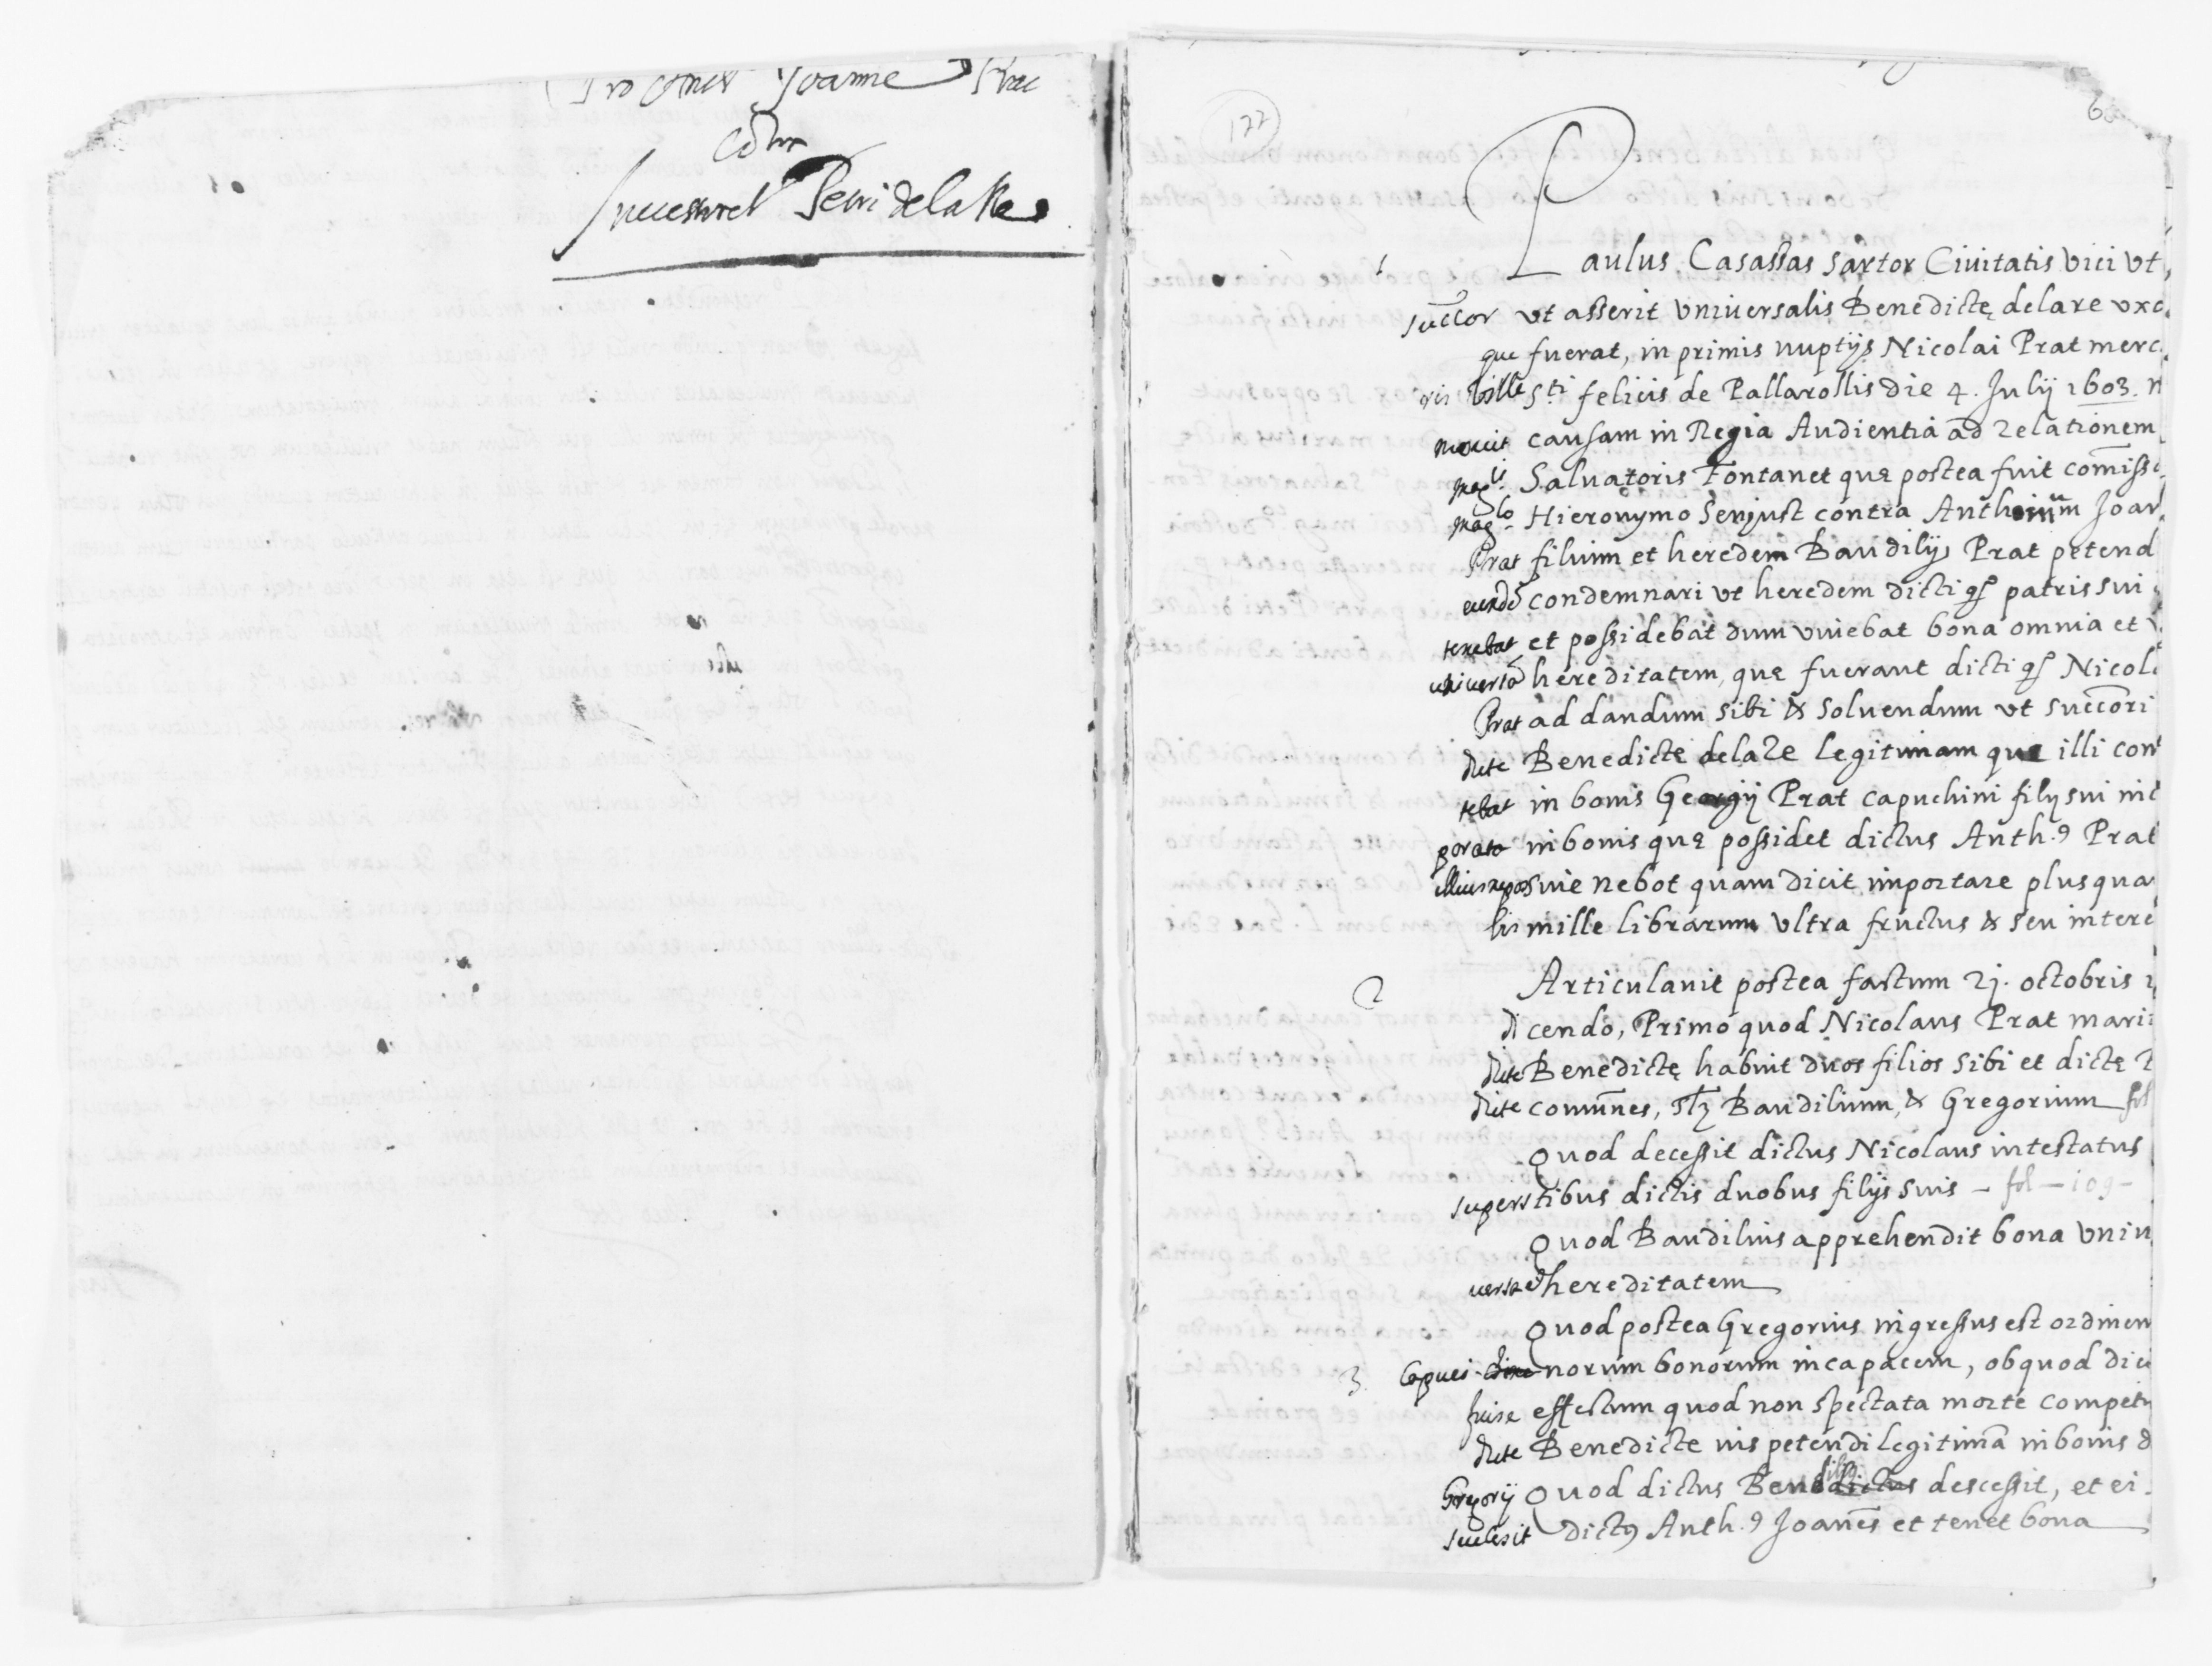 Joanne Prat
Contra
Petri dela Re
122
Paulus Casassas Sartor Ciuitatis vici vt
1
succor vt asserit vniuersalis Benedictę delare vxo
que fuerat, in primis nuptijs Nicolai Prat merc
ris ville Sti felicis de Pallarollis die 4. Julij 1603.
mouit causam in Regia Audientia ad relationem
magci Salvatoris Fontanet quę postea fuit comiss
magco Hieronymo Senjust contra Anthonium Joan
Prat filium et heredem Baudilij Prat petend
eundē condemnari vt heredem dicti qo patris sui
tenebat et possidebat dum viuebat bona omnia et
vniuersā hereditatem, quę fuerant dicti qo Nicol
Prat ad dandum sibi & soluendum vt succori
dicte Benedictę delare legitimam quę illi com
tebat in bonis Georgij Prat capuchini filij sui
in bonis quę possidet dictus Anth.9 Prat
illius nepos sive nebot quam dicit importare plusqua
bis mille librarum vltra fructus & seu intere
2
Articulauit postea factum 21. octobris 1
dicendo, Primo quod Nicolaus Prat mari
dicte Benedictę habuit duos filios sibi et dictę
dicte comunes, sctz Baudilium, & Gregorium fol
Quod decessit dictus Nicolaus intestatus
superstibus dictis duobus filijs suis - fol - 109 -
Quod Baudilius apprehendit bona vniu
versā hereditatem
Quod postea Gregorius ingressus est ordinem
3
Capuci norum bonorum incapacem, obquod dici
fuise effectum quod non spectata morte compet
dicte Benedicte ius petendi legitimā in bonis d
Gregorij Quod dictus Baudilius descessit, et ei
succesit dict9 Anth.9 Joanes et tenet bona